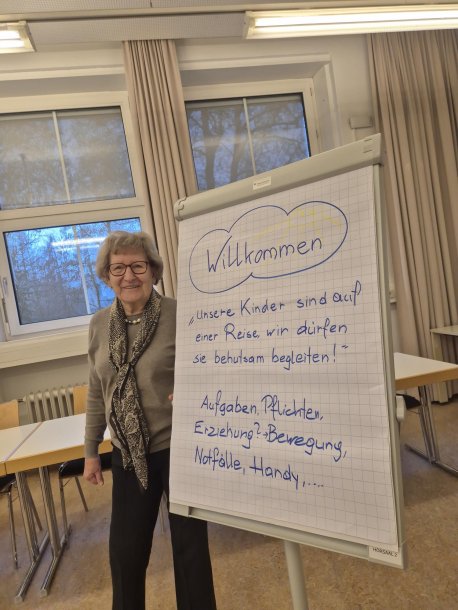 Willkommen
„Unsere Kinder sind auf
einer Reise, wir dürfen
sie behutsam begleiten!“
Aufgaben, Pflichten,
Erziehung?→Bewegung,
Notfälle, Handy,....
HÖRSAAL 2